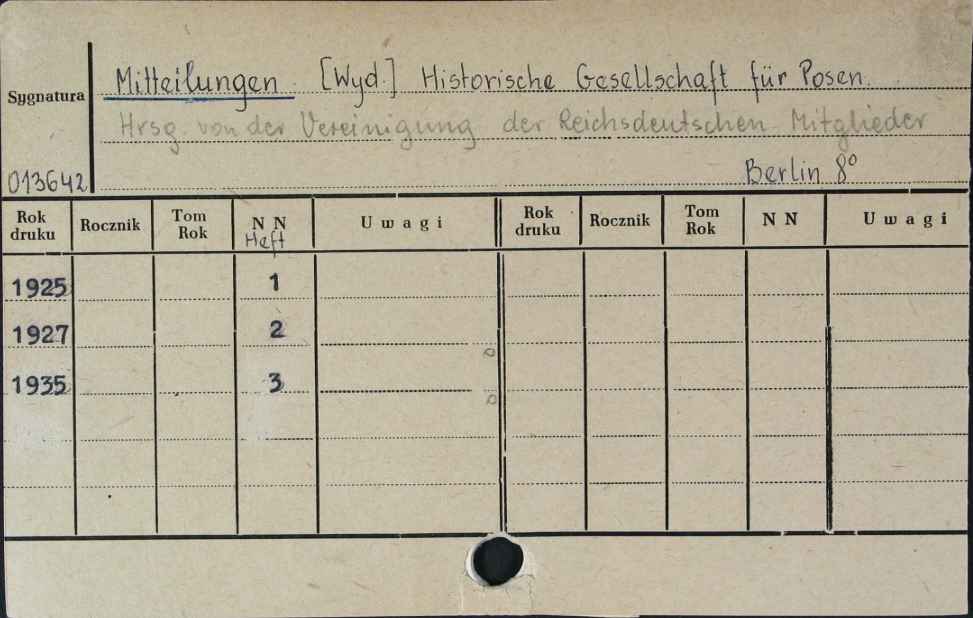 Sygnatura
Mitteilungen. [Wyd.] Historische Gesellschaft für Posen.
Hrsg. von der Vereinigung der Reichsdeutschen Mitglieder
013642
Berlin 8º
Rok druku Rocznik Tom Rok NN Heft Uwagi Rok druku Rocznik Tom Rok NN Uwagi
1925 1
1927 2
1935 3